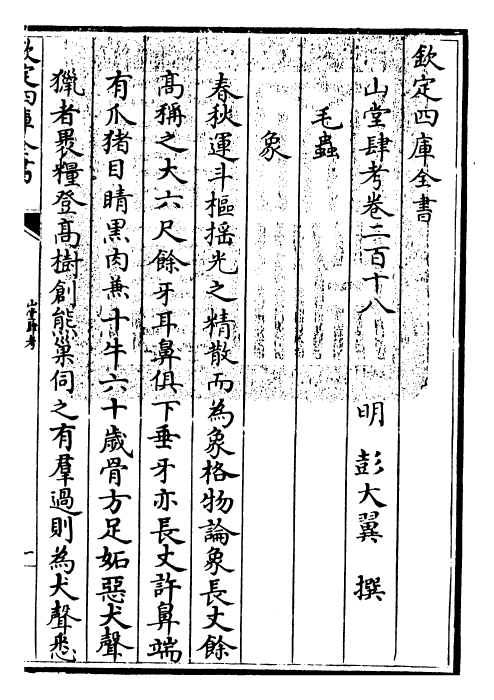 欽定四庫全書
山堂肆考卷二百十八
明 彭大翼 撰
毛蟲
象
春秋運斗樞揺光之精散而為象格物論象長丈餘
髙稱之大六尺餘牙耳鼻俱下垂牙亦長丈許鼻端
有爪猪目睛黒肉兼十牛六十歳骨方足妬惡犬聲
獵者褁糧登髙樹創熊巢伺之有羣過則為犬聲悉
欽定四庫全書
山堂肆考
一